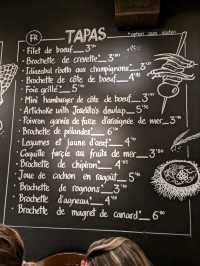 FR
TAPAS
*option sans gluten
• Filet de boeuf* 3
• Brochette de crevette* 3
• Idiazabal rosti aux champignons* 3
• Brochette de côte de boeuf* 4
• Foie grillé* 5
• Mini hamburger de côte de boeuf 3
• Artichoke with Jewdie's dewlap 5
• Poivron garnis de farce d'araignée de mer 3
• Brochette de pétoncles* 6
• Legumes et jaune d'oeuf* 4
• Coquille farçie au fruits de mer 3
• Brochette de chipiron* 4
• Joue de cochon en ragoût 5
• Brochette de rognons* 3
• Brochette d'agneau* 4
• Brochette de magret de canard* 6